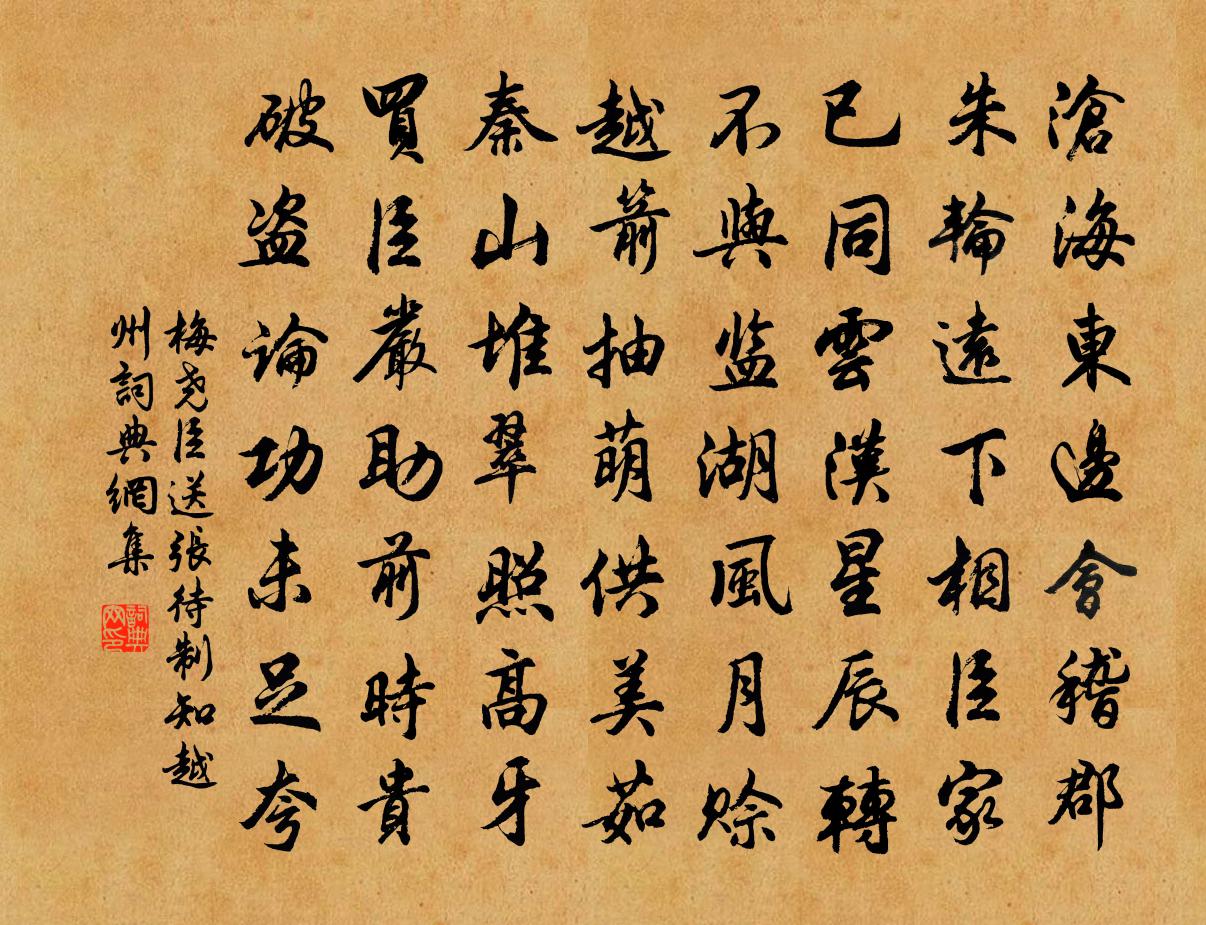 滄海東邊會稽郡
朱輪遠下相臣家
已同雲漢星辰轉
不與監湖風月賒
越箭抽萌供美茹
秦山堆翠照高牙
買臣嚴助前時貴
破盗論功未足夸
梅尧臣送張待制知越
州詞典網集
詞典
网印